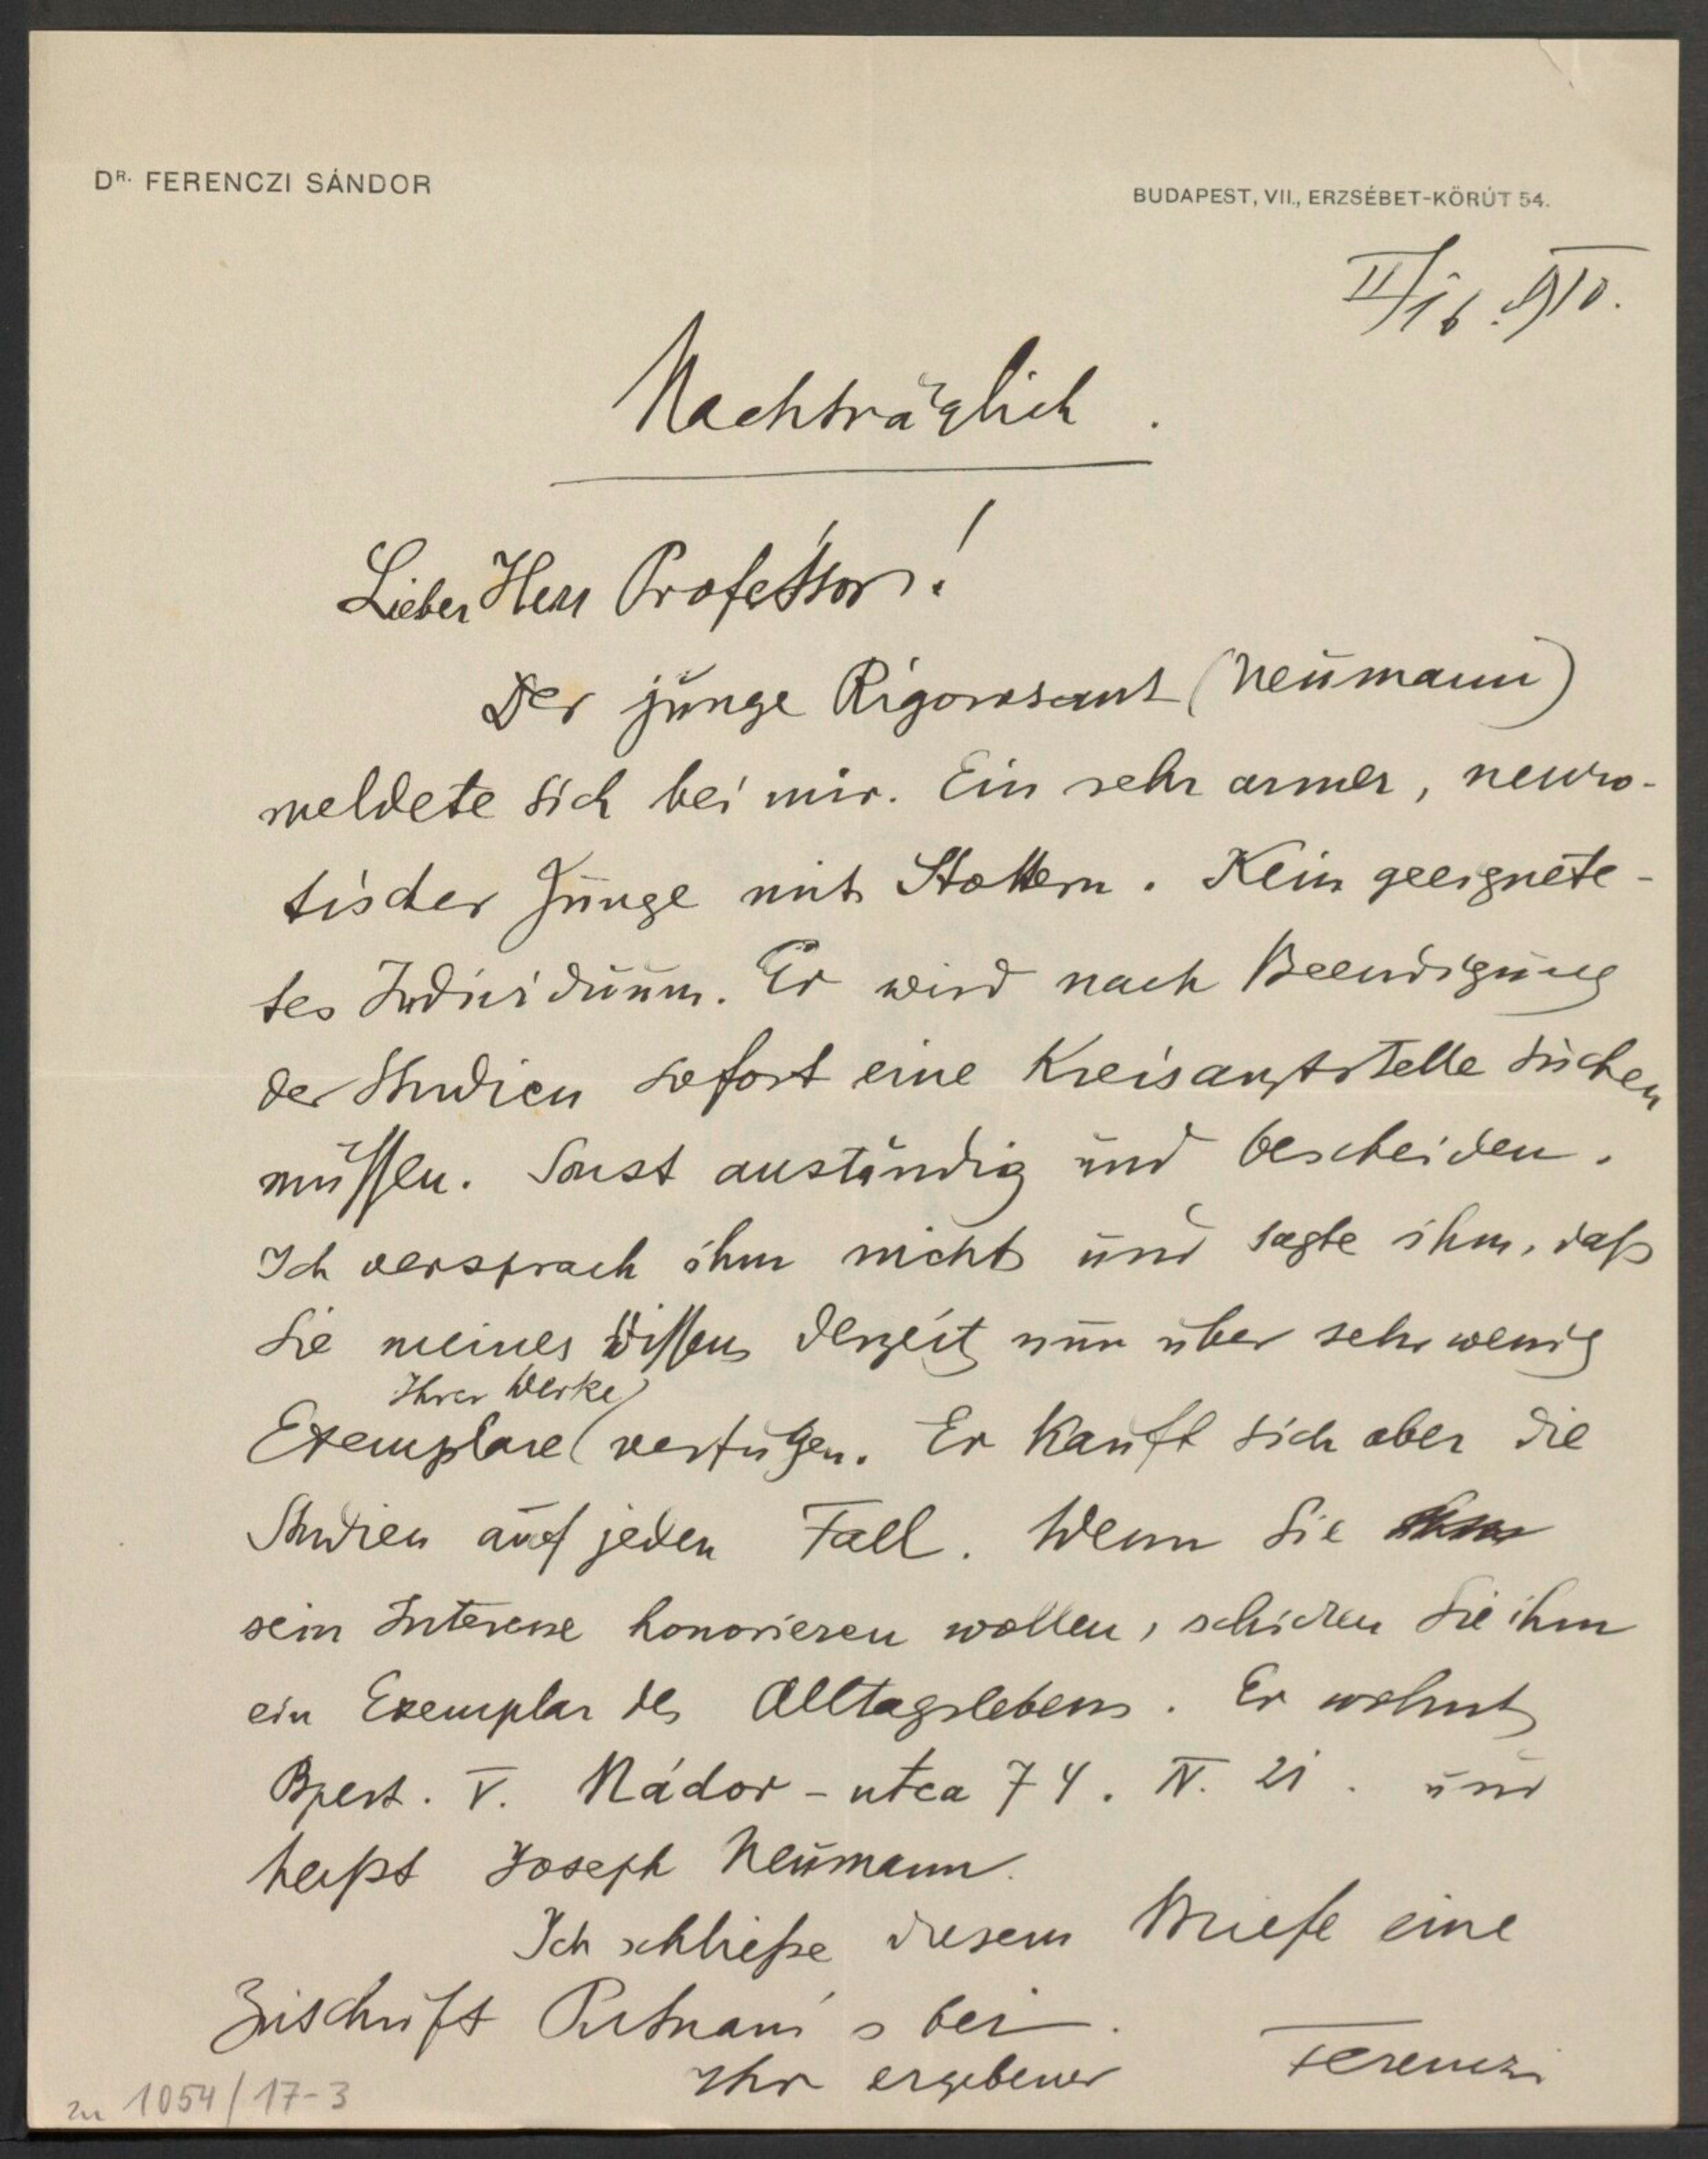 DR. FERENCZI SÁNDOR
BUDAPEST, VII., ERZSÉBET-KÖRÚT 54.
II/16. 910.
Nachträglich.
Lieber Herr Professor!
Der junge Rigorosant (Neumann)
meldete sich bei mir. Ein sehr armer, neuro-
tischer Junge mit Stottern. Kein geeignete-
tes Individuum. Er wird nach Beendigung
der Studien sofort eine Kreisarztstelle suchen
müssen. Sonst anständig und bescheiden.
Ich versprach ihm nichts und sagte ihm, daß
Sie meines Wissens derzeit nur über sehr wenig
Ihrer Werke
Exemplare verfügen. Er kauft sich aber die
Studien auf jeden Fall. Wenn Sie
sein Interesse honorieren wollen, schicken Sie ihm
ein Exemplar des Alltagslebens. Er wohnt
Bpest. V. Nádor-utca 74. IV. 21. und
heißt Joseph Neumann.
Ich schließe diesem Briefe eine
Zuschrift Putnam's bei.
Ihr ergebener Ferenczi
zu 1054/17-3